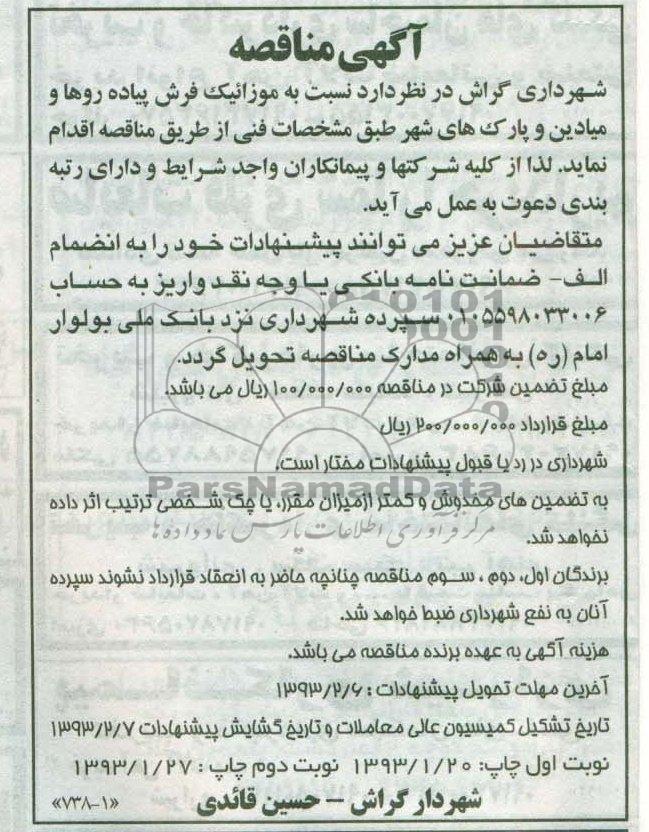 آگهی مناقصه
شهرداری گراش در نظر دارد نسبت به موزائیک فرش پیاده روها و
میادین و پارک های شهر طبق مشخصات فنی از طریق مناقصه اقدام
نماید. لذا از کلیه شرکتها و پیمانکاران واجد شرایط و دارای رتبه
بندی دعوت به عمل می آید.
متقاضیان عزیز می توانند پیشنهادات خود را به انضمام
الف- ضمانت نامه بانکی یا وجه نقد واریز به حساب
۰۱۰۵۵۹۸۰۳۳۰۰۶ سپرده شهرداری نزد بانک ملی بولوار
امام (ره) به همراه مدارک مناقصه تحویل گردد.
مبلغ تضمین شرکت در مناقصه ۱۰۰/۰۰۰/۰۰۰ ریال می باشد.
مبلغ قرارداد ۲۰۰/۰۰۰/۰۰۰ ریال
شهرداری در رد یا قبول پیشنهادات مختار است.
ParsNamadData
به تضمین های مخدوش و کمتر از میزان مقرر، یا چک شخصی ترتیب اثر داده
مرکز فرآوری اطلاعات پارس نماد داده ها
نخواهد شد.
برندگان اول، دوم ، سوم مناقصه چنانچه حاضر به انعقاد قرارداد نشوند سپرده
آنان به نفع شهرداری ضبط خواهد شد.
هزینه آگهی به عهده برنده مناقصه می باشد.
آخرین مهلت تحویل پیشنهادات : ۱۳۹۳/۲/۶
تاریخ تشکیل کمیسیون عالی معاملات و تاریخ گشایش پیشنهادات ۱۳۹۳/۲/۷
نوبت اول چاپ: ۱۳۹۳/۱/۲۰ نوبت دوم چاپ : ۱۳۹۳/۱/۲۷
شهردار گراش – حسین قائدی
«۷۳۸-۱»